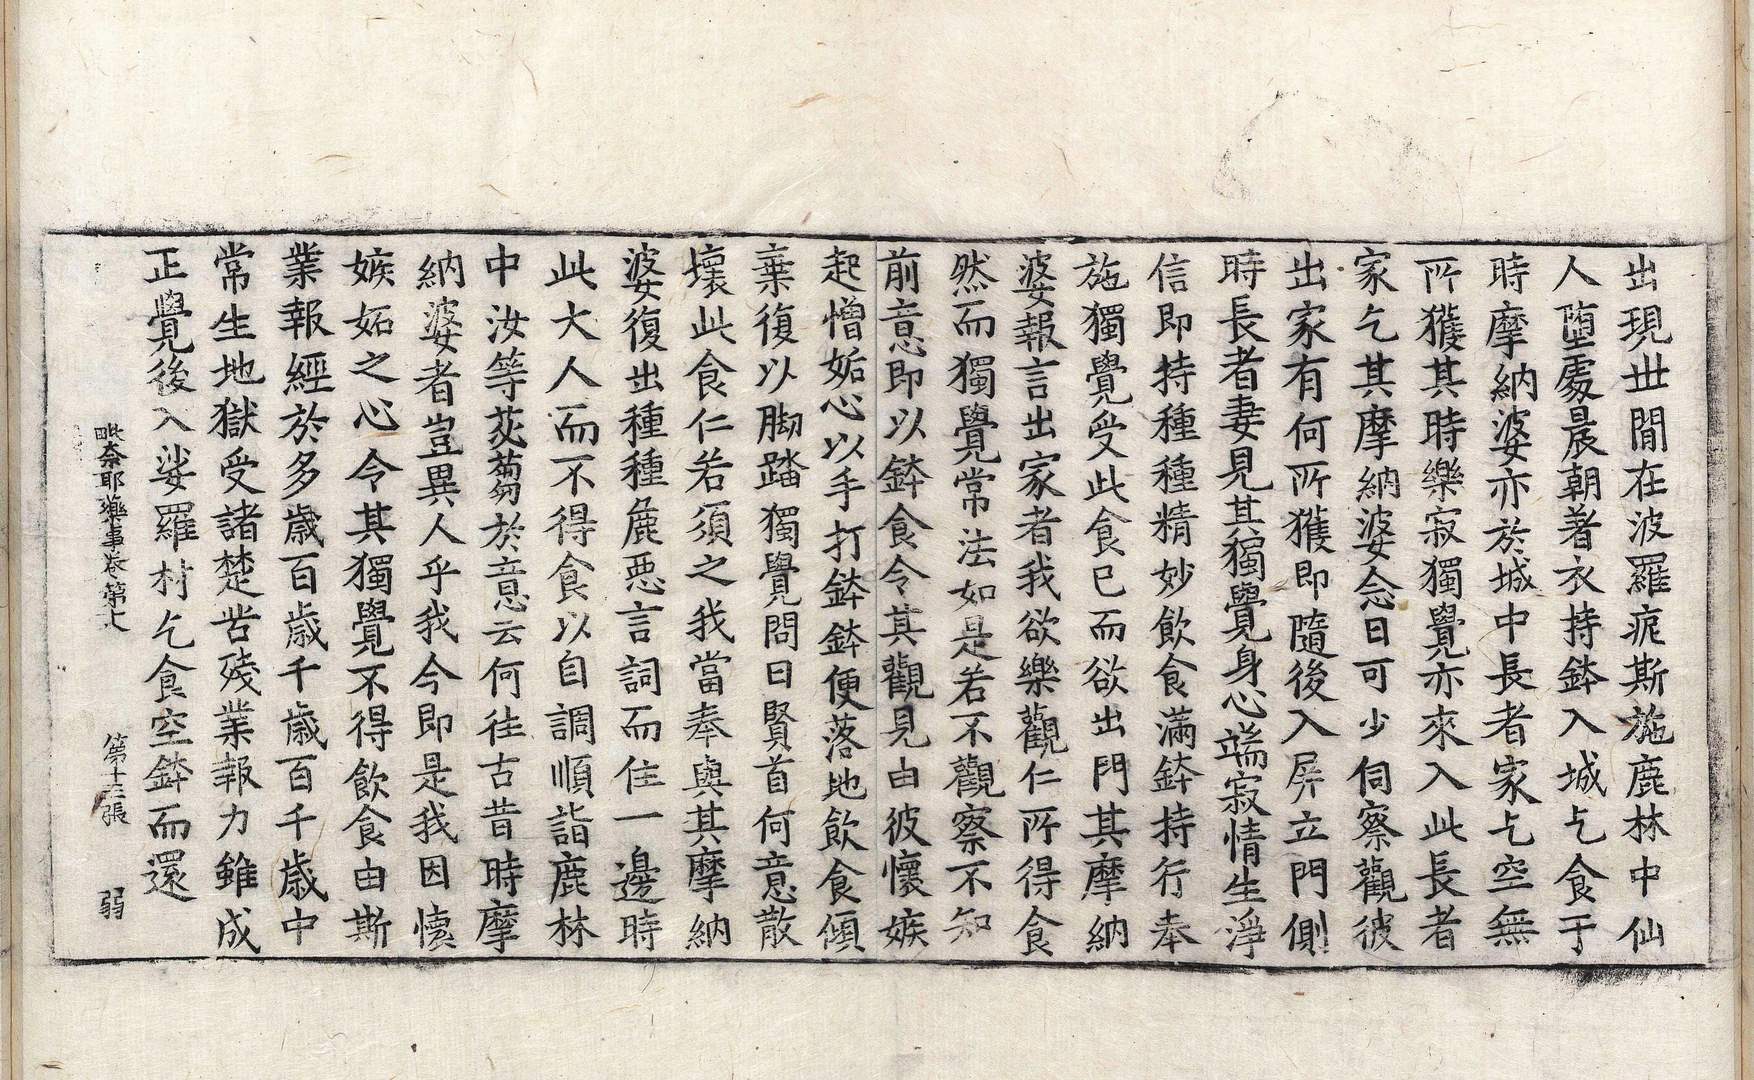 出現世間在波羅痆斯施鹿林中仙
人堕處晨朝著衣持鉢入城乞食于
時摩納婆亦於城中長者家乞空無
所獲其時樂寂獨覺亦來入此長者
家乞其摩納婆念曰可少伺察觀彼
出家有何所獲即隨後入屏立門側
時長者妻見其獨覺身心端寂情生淨
信即持種種精妙飲食滿鉢持行奉
施獨覺受此食已而欲出門其摩納
婆報言出家者我欲樂觀仁所得食
然而獨覺常法如是若不觀察不知
前意即以鉢食令其觀見由彼懷嫉
起憎妬心以手打鉢鉢便落地飲食傾
棄復以脚踏獨覺問曰賢首何意散
壞此食仁若須之我當奉與其摩納
婆復出種種麁惡言詞而住一邊時
此大人而不得食以自調順詣鹿林
中汝等苾蒭於意云何往古昔時摩
納婆者豈異人乎我今即是我因懷
嫉妬之心令其獨覺不得飲食由斯
業報經於多歲百歲千歲百千歲中
常生地獄受諸楚苦殘業報力雖成
正覺後入娑羅村乞食空鉢而還
毗奈耶藥事卷第十八 第十三張 弱